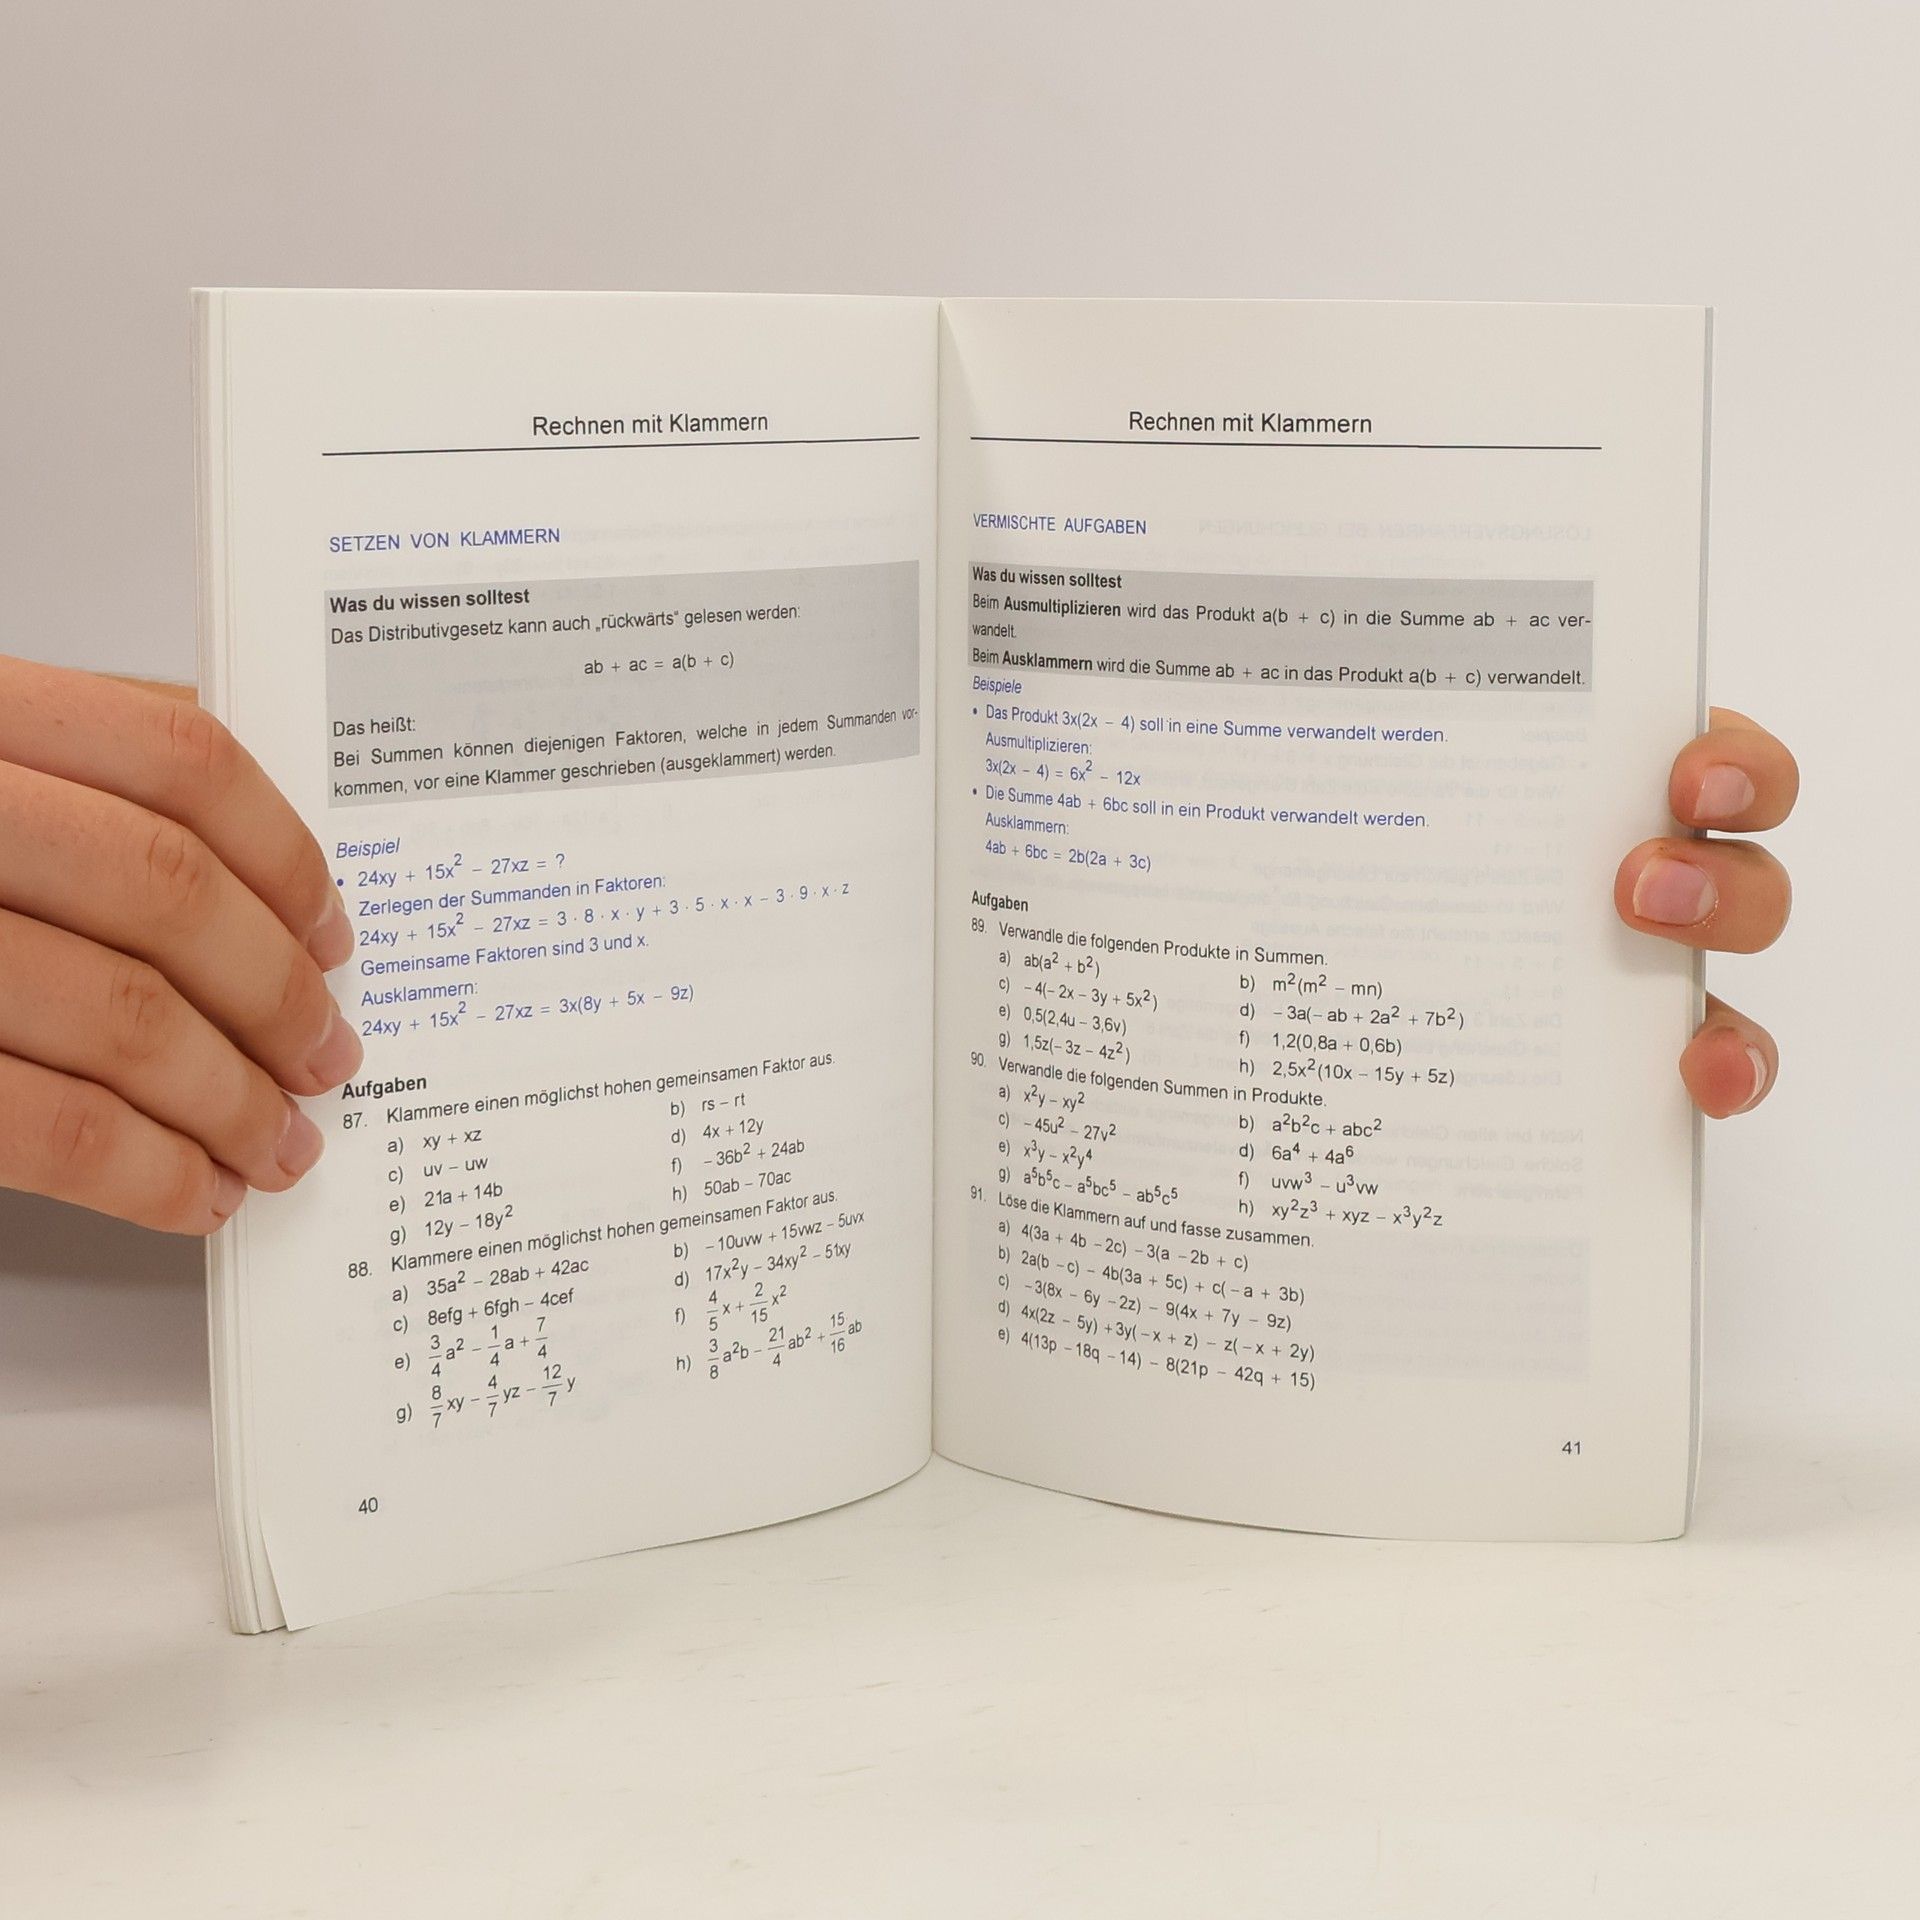 Rechnen mit Klammern
SETZEN VON KLAMMERN
Was du wissen solltest
Das Distributivgesetz kann auch „rückwärts“ gelesen werden:
ab + ac = a(b + c)
Das heißt:
Bei Summen können diejenigen Faktoren, welche in jedem Summanden vor-
kommen, vor eine Klammer geschrieben (ausgeklammert) werden.
Beispiel
• 24xy + 15x² − 27xz = ?
Zerlegen der Summanden in Faktoren:
24xy + 15x² − 27xz = 3 · 8 · x · y + 3 · 5 · x · x − 3 · 9 · x · z
Gemeinsame Faktoren sind 3 und x.
Ausklammern:
24xy + 15x² − 27xz = 3x(8y + 5x − 9z)
Aufgaben
87. Klammere einen möglichst hohen gemeinsamen Faktor aus.
a) xy + xz b) rs − rt
c) uv − uw d) 4x + 12y
e) 21a + 14b f) − 36b² + 24ab
g) 12y − 18y² h) 50ab − 70ac
88. Klammere einen möglichst hohen gemeinsamen Faktor aus.
a) 35a² − 28ab + 42ac b) − 10uvw + 15vwz − 5uvx
c) 8efg + 6fgh − 4cef d) 17x²y − 34xy² − 51xy
e) 3/4 a² − 1/4 a + 7/4 f) 4/5 x + 2/15 x²
g) 8/7 xy − 4/7 yz − 12/7 y h) 3/8 a²b − 21/4 ab² + 15/16 ab
40
Rechnen mit Klammern
VERMISCHTE AUFGABEN
Was du wissen solltest
Beim Ausmultiplizieren wird das Produkt a(b + c) in die Summe ab + ac ver-
wandelt.
Beim Ausklammern wird die Summe ab + ac in das Produkt a(b + c) verwandelt.
Beispiele
• Das Produkt 3x(2x − 4) soll in eine Summe verwandelt werden.
Ausmultiplizieren:
3x(2x − 4) = 6x² − 12x
• Die Summe 4ab + 6bc soll in ein Produkt verwandelt werden.
Ausklammern:
4ab + 6bc = 2b(2a + 3c)
Aufgaben
89. Verwandle die folgenden Produkte in Summen.
a) ab(a² + b²) b) m²(m² − mn)
c) − 4(− 2x − 3y + 5x²) d) − 3a(− ab + 2a² + 7b²)
e) 0,5(2,4u − 3,6v) f) 1,2(0,8a + 0,6b)
g) 1,5z(− 3z − 4z²) h) 2,5x²(10x − 15y + 5z)
90. Verwandle die folgenden Summen in Produkte.
a) x²y − xy² b) a²b²c + abc²
c) − 45u² − 27v² d) 6a⁴ + 4a⁶
e) x³y − x²y⁴ f) uvw³ − u³vw
g) a⁵b⁵c − a⁵bc⁵ − ab⁵c⁵ h) xy²z³ + xyz − x³y²z
91. Löse die Klammern auf und fasse zusammen.
a) 4(3a + 4b − 2c) − 3(a − 2b + c)
b) 2a(b − c) − 4b(3a + 5c) + c( − a + 3b)
c) − 3(8x − 6y − 2z) − 9(4x + 7y − 9z)
d) 4x(2z − 5y) + 3y( − x + z) − z( − x + 2y)
e) 4(13p − 18q − 14) − 8(21p − 42q + 15)
41